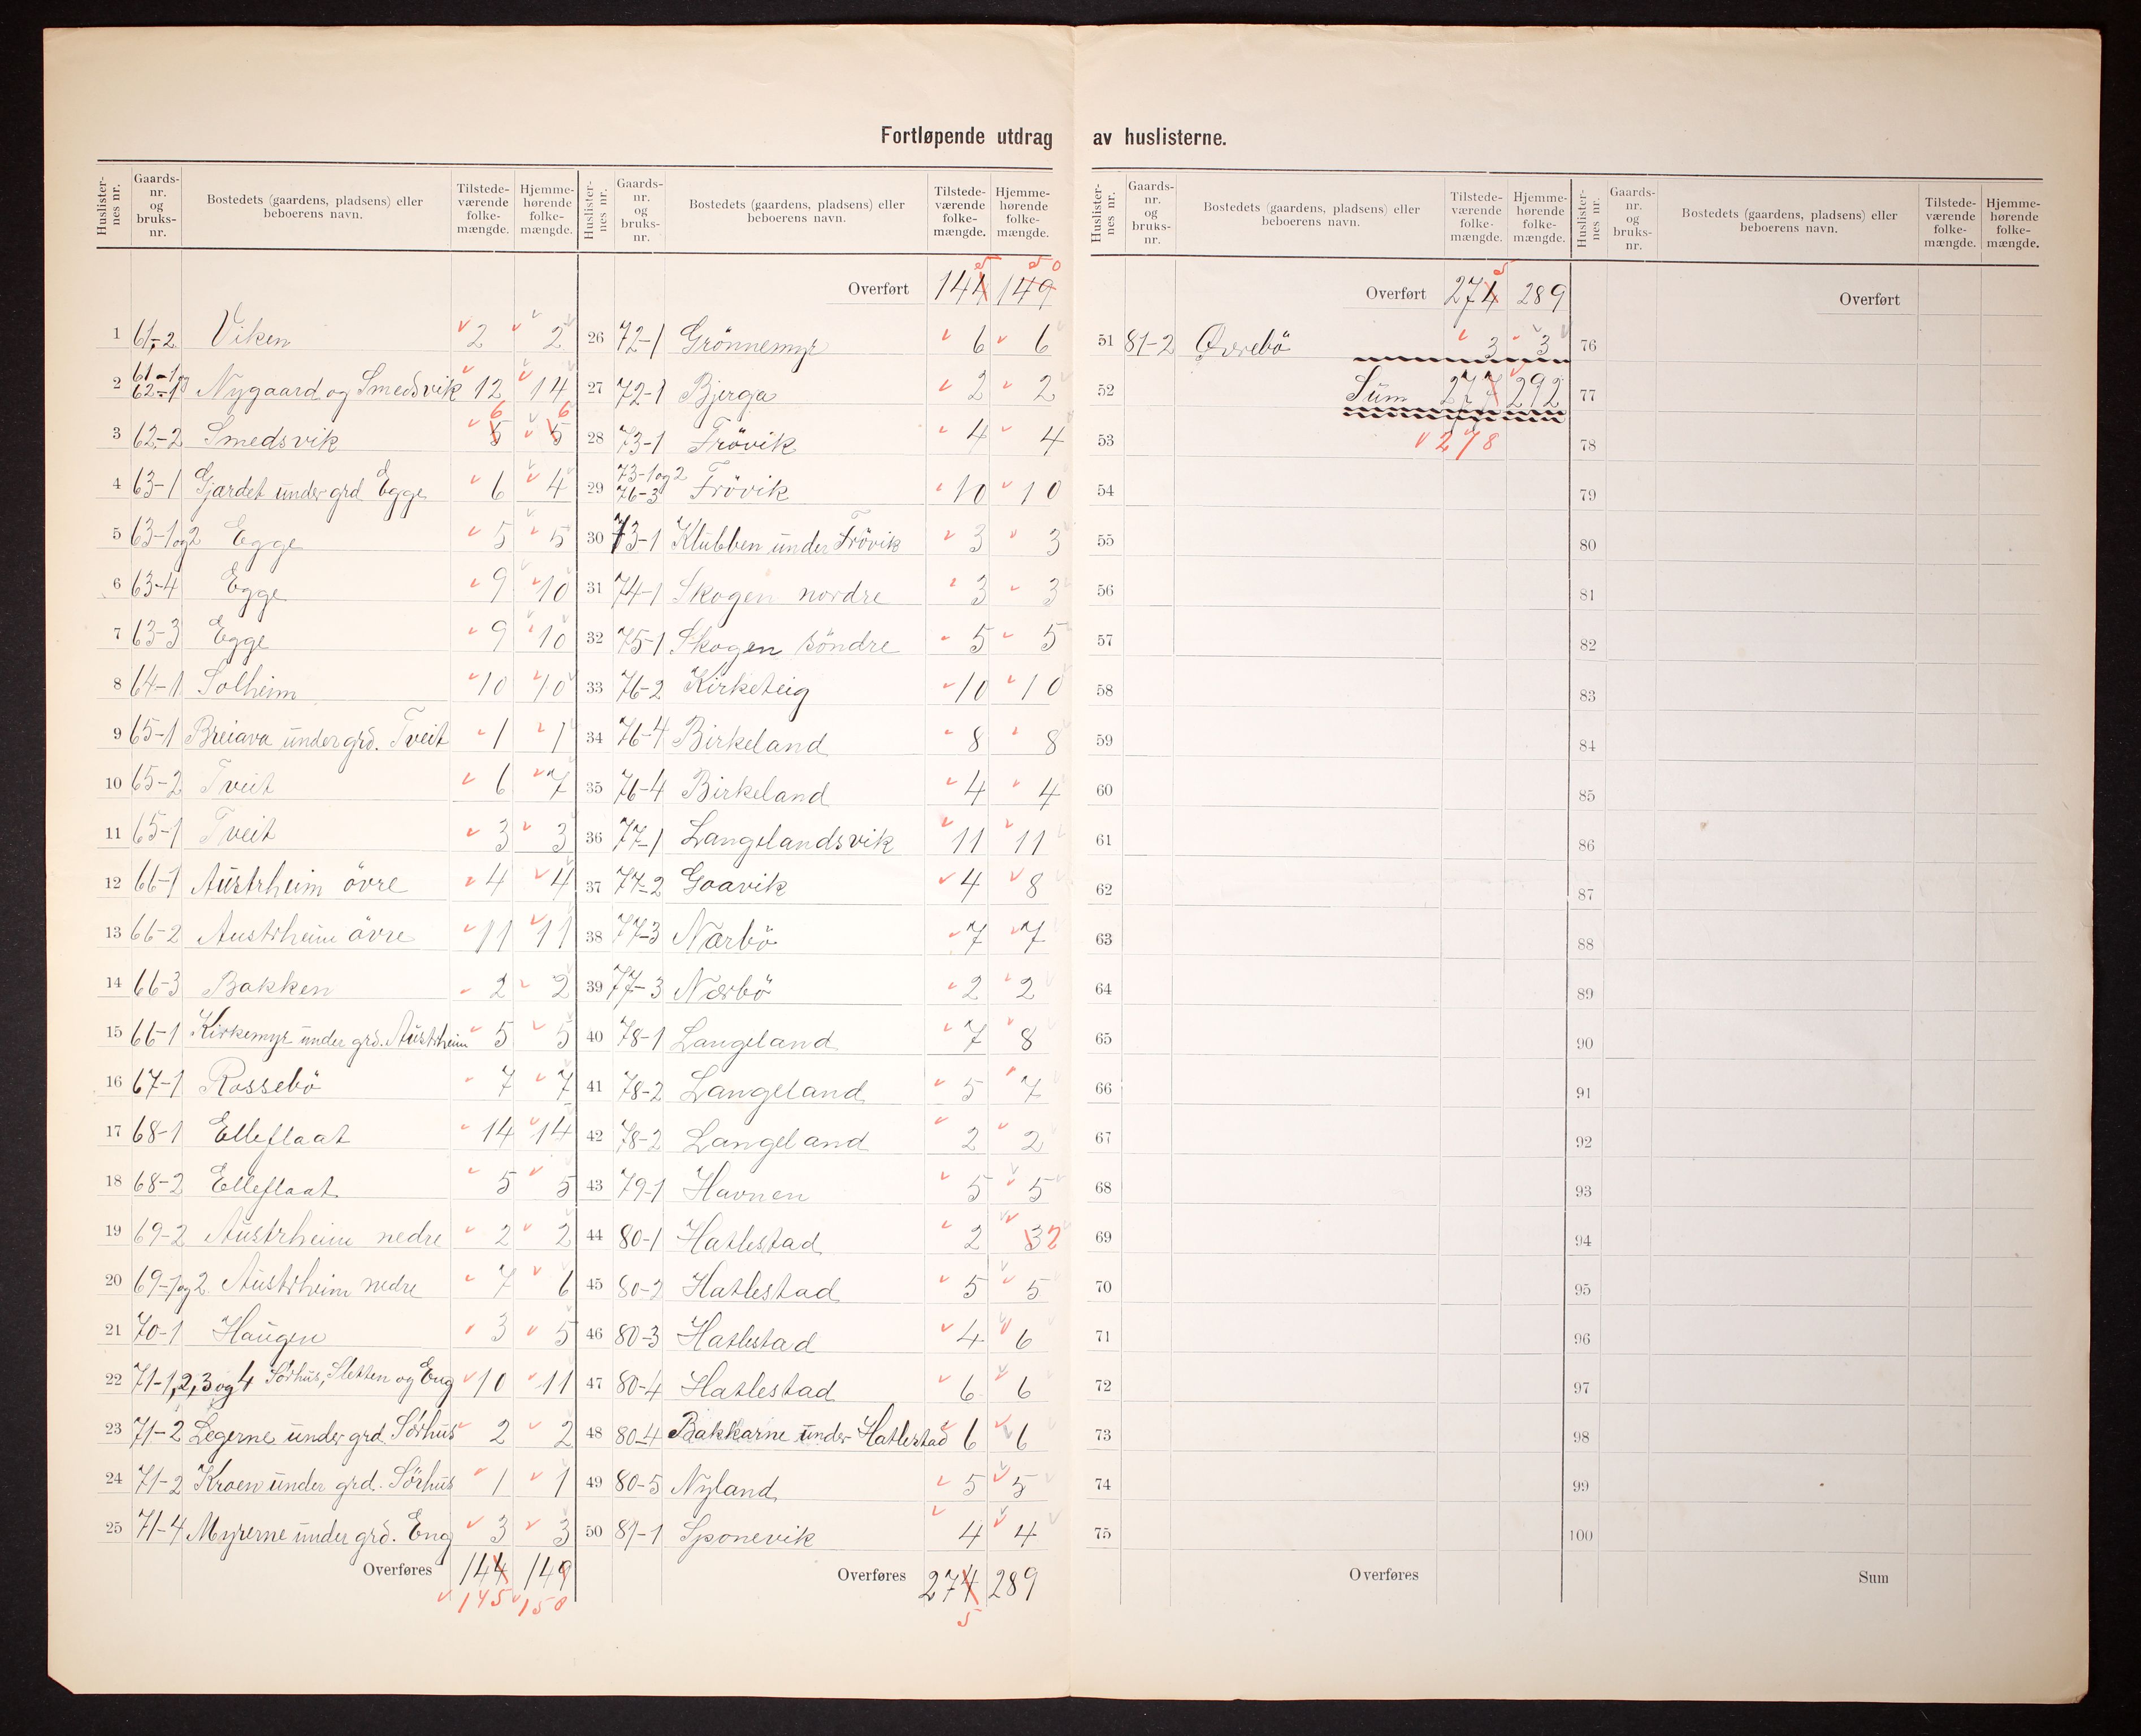 Fortløpende utdrag av huslisterne.
Huslisternes nr. Gaardsnr. og bruksnr. Bostedets (gaardens, pladsens) eller beboerens navn. Tilstedeværende folkemængde. Hjemmehørende folkemængde.
1 61-2 Viken 2 2
2 61-1 og 62-1 Nygaard og Smedsvik 12 14
3 62-2 Smedsvik 5 6 5 6
4 63-1 Gjærdet under grd Egge 6 4
5 63-1og2 Egge 5 5
6 63-4 Egge 9 10
7 63-3 Egge 9 10
8 64-1 Solheim 10 10
9 65-1 Breiava under grd. Tveit 1 1
10 65-2 Tveit 6 7
11 65-1 Tveit 3 3
12 66-1 Austrheim övre 4 4
13 66-2 Austrheim övre 11 11
14 66-3 Bakken 2 2
15 66-1 Kirkemyr under grd. Austrheim 5 5
16 67-1 Rossebö 7 7
17 68-1 Elleflaat 14 14
18 68-2 Elleflaat 5 5
19 69-2 Austrheim nedre 2 2
20 69-1og2 Austrheim nedre 7 6
21 70-1 Haugen 3 5
22 71-1,2,3og4 Sörhus, Sletten og Eng 10 11
23 71-2 Legerne under grd Sörhus 2 2
24 71-2 Kroen under grd. Sörhus 1 1
25 71-4 Myrerne under grd. Eng 3 3
Overføres 144 149
145 150
Huslisternes nr. Gaardsnr. og bruksnr. Bostedets (gaardens, pladsens) eller beboerens navn. Tilstedeværende folkemængde. Hjemmehørende folkemængde.
Overført 144 5 149 50
26 72-1 Grönnemyr 6 6
27 72-1 Bjerga 2 2
28 73-1 Frövik 4 4
29 73-1og2 76-3 Frövik 10 10
30 73-1 Klubben under Frövik 3 3
31 74-1 Skogen nordre 3 3
32 75-1 Skogen söndre 5 5
33 76-2 Kirketeig 10 10
34 76-4 Birkeland 8 8
35 76-4 Birkeland 4 4
36 77-1 Langelandsvik 11 11
37 77-2 Goavik 4 8
38 77-3 Nærbö 7 7
39 77-3 Nærbö 2 2
40 78-1 Langeland 7 8
41 78-2 Langeland 5 7
42 78-2 Langeland 2 2
43 79-1 Havnen 5 5
44 80-1 Hatlestad 2 3 2
45 80-2 Hatlestad 5 5
46 80-3 Hatlestad 4 6
47 80-4 Hatlestad 6 6
48 80-4 Bakkarne under Hatlestad 6 6
49 80-5 Nyland 5 5
50 81-1 Sponevik 4 4
Overføres 274 289
5
Huslisternes nr. Gaardsnr. og bruksnr. Bostedets (gaardens, pladsens) eller beboerens navn. Tilstedeværende folkemængde. Hjemmehørende folkemængde.
Overført 274 5 289
51 81-2 Øvrebö 3 3
52 Sum 277 292
53 278
54
55
56
57
58
59
60
61
62
63
64
65
66
67
68
69
70
71
72
73
74
75
Overføres
Huslisternes nr. Gaardsnr. og bruksnr. Bostedets (gaardens, pladsens) eller beboerens navn. Tilstedeværende folkemængde. Hjemmehørende folkemængde.
Overført
76
77
78
79
80
81
82
83
84
85
86
87
88
89
90
91
92
93
94
95
96
97
98
99
100
Sum